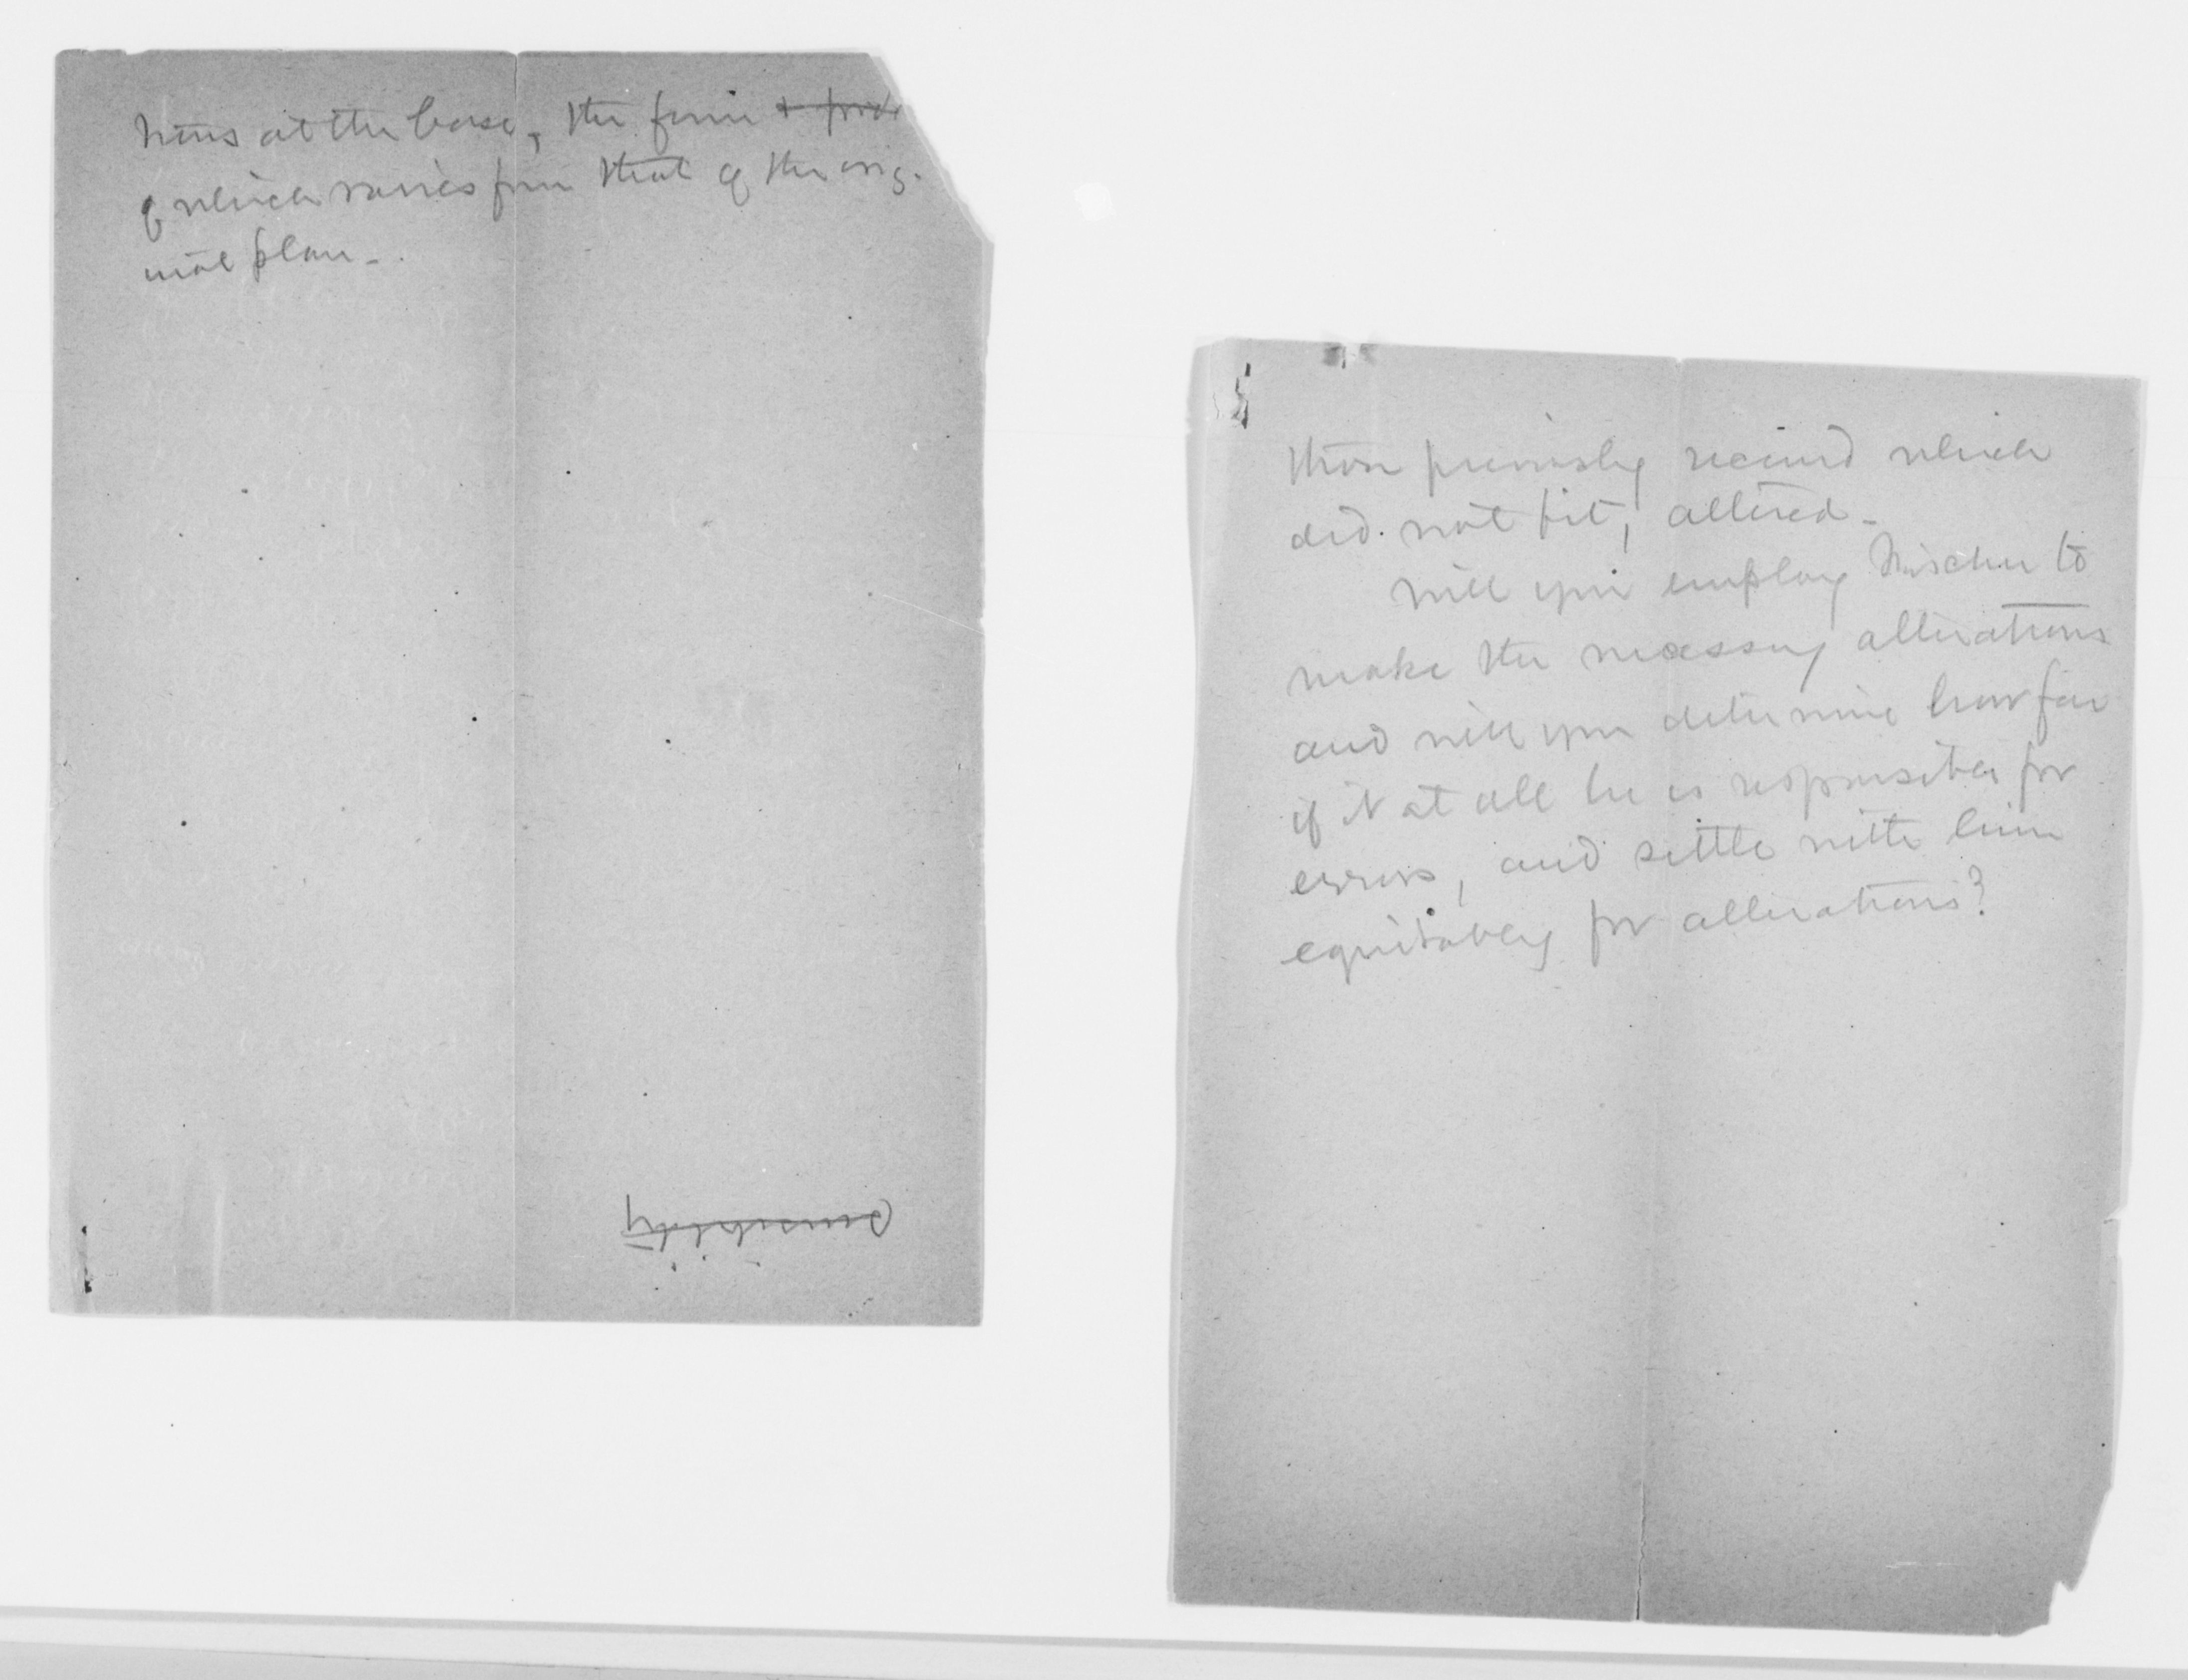 at the base, the form + 
of which varies from that of the orig-
inal plan.
those previously received which
did not fit, altered.
Will you employ to
make the necessary alterations
and will you determine how far
if at all he is responsible for
errors, and settle with him
equitably for alterations?